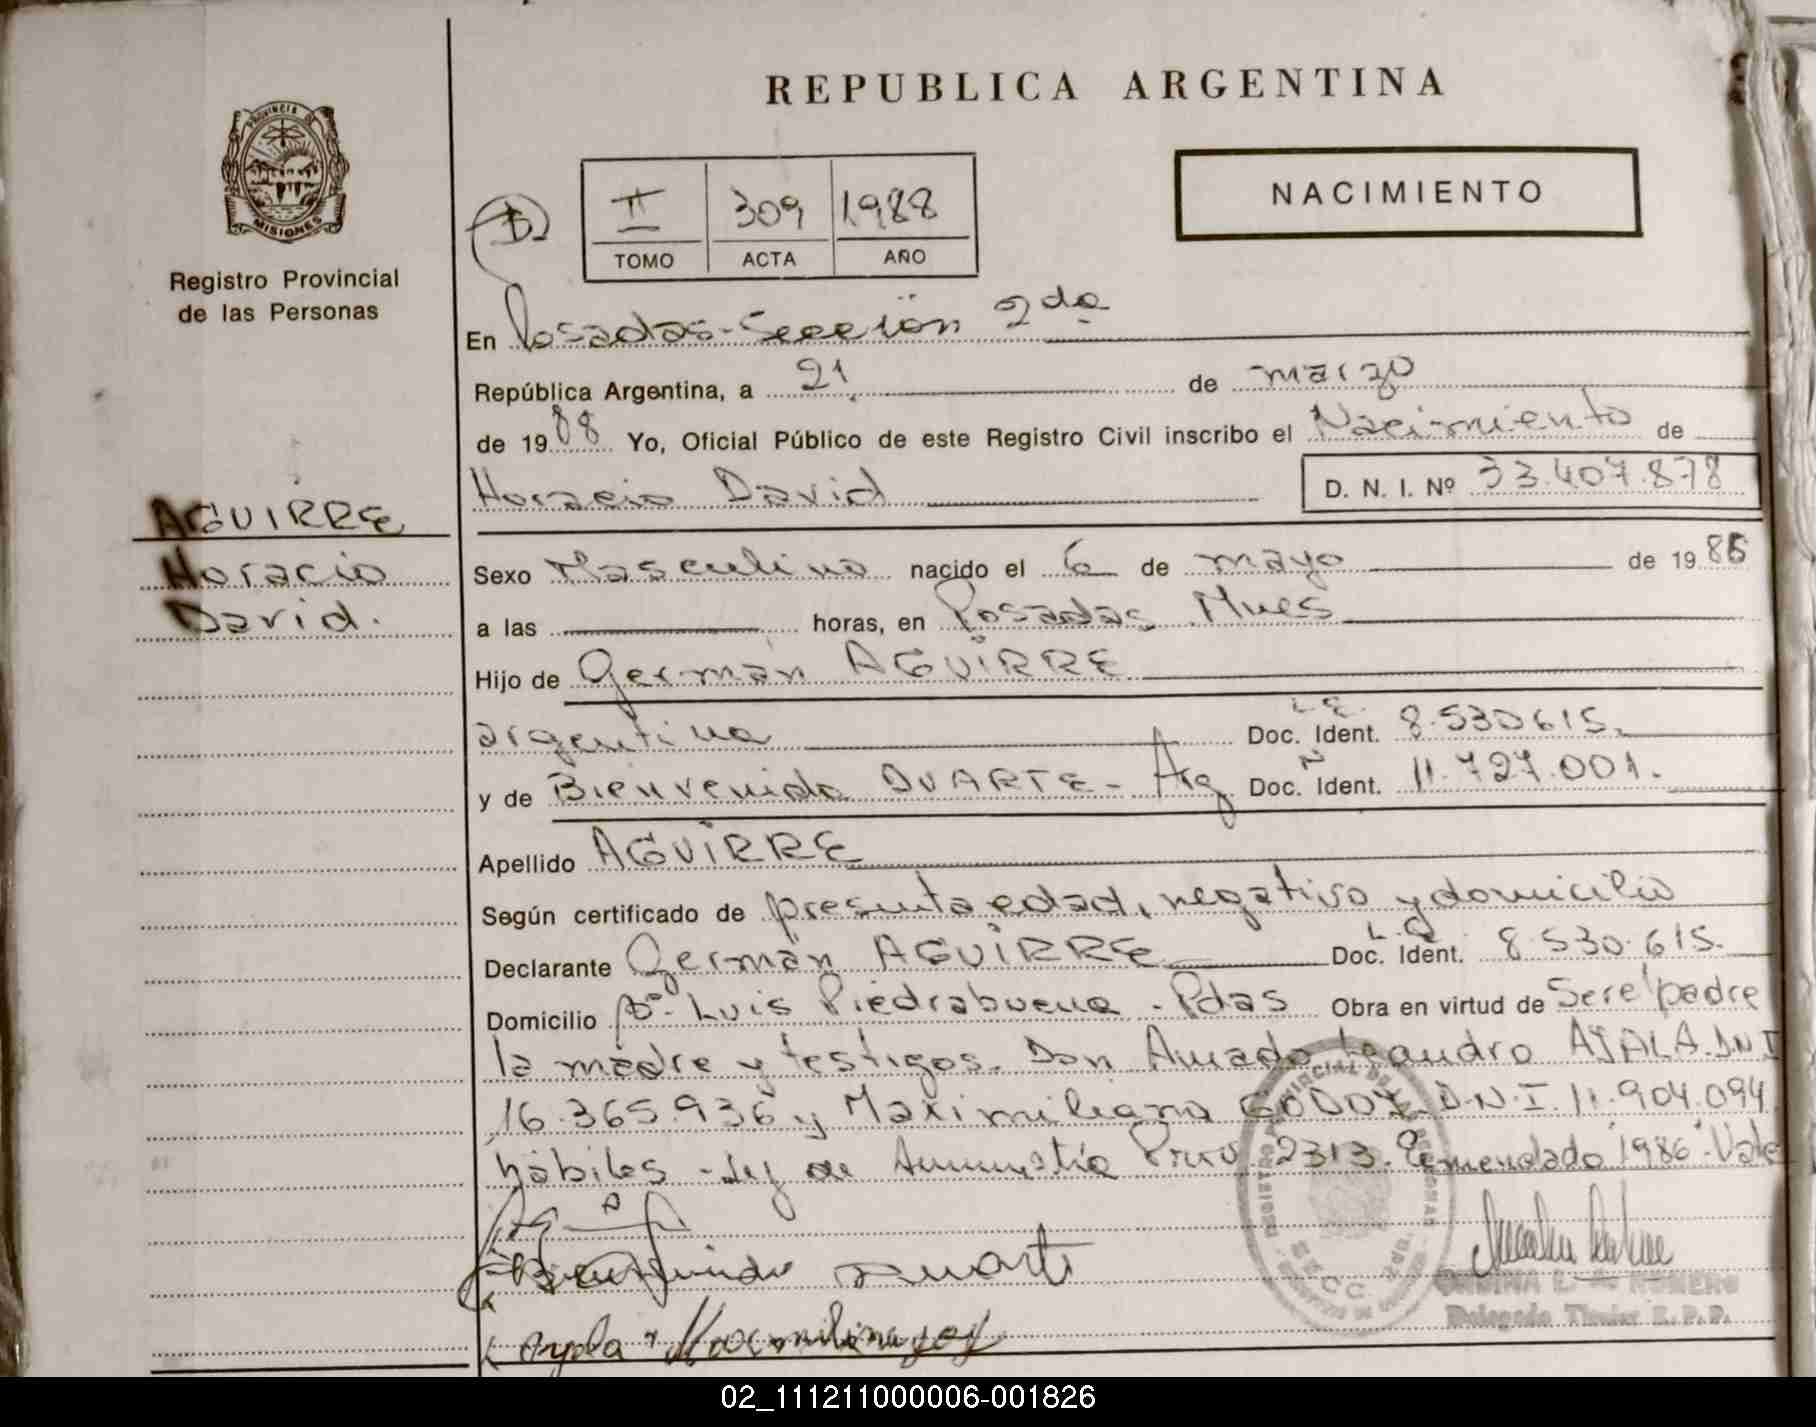 REPUBLICA ARGENTINA
PROVINCIA DE
MISIONES
Registro Provincial
de las Personas
II 309 1988
TOMO ACTA AÑO
NACIMIENTO
En Posadas-Sección 2da
República Argentina, a 21 de marzo
de 1988 Yo, Oficial Público de este Registro Civil inscribo el Nacimiento de
Horacio David D. N. I. Nº 33.407.878
AGUIRRE
Horacio
David.
Sexo Masculino nacido el 6 de mayo de 1986
a las horas, en Posadas Mnes
Hijo de Germán AGUIRRE
argentina L.E. Doc. Ident. 8.530615.
y de Bienvenida DUARTE - Arg Doc. Ident. 11.727.001.
Apellido AGUIRRE
Según certificado de presunta edad, negativo y domicilio
Declarante Germán AGUIRRE L.E. Doc. Ident. 8.530.615.
Domicilio Bº Luis Piedrabuena - Pdas Obra en virtud de Ser el padre
la madre y testigos. Don Amado Leandro AYALA. DNI
16.365.936 y Maximiliana GODOY. D.N.I. 11.904.094
hábiles - Ley de Amnistía Prov. 2313. Enmendado "1986" Vale
Bienvenida Duarte
REGISTRO PROVINCIAL DE LAS PERSONAS
SECC.
ROMERO
Delegado Titular R.P.P.
02_111211000006-001826